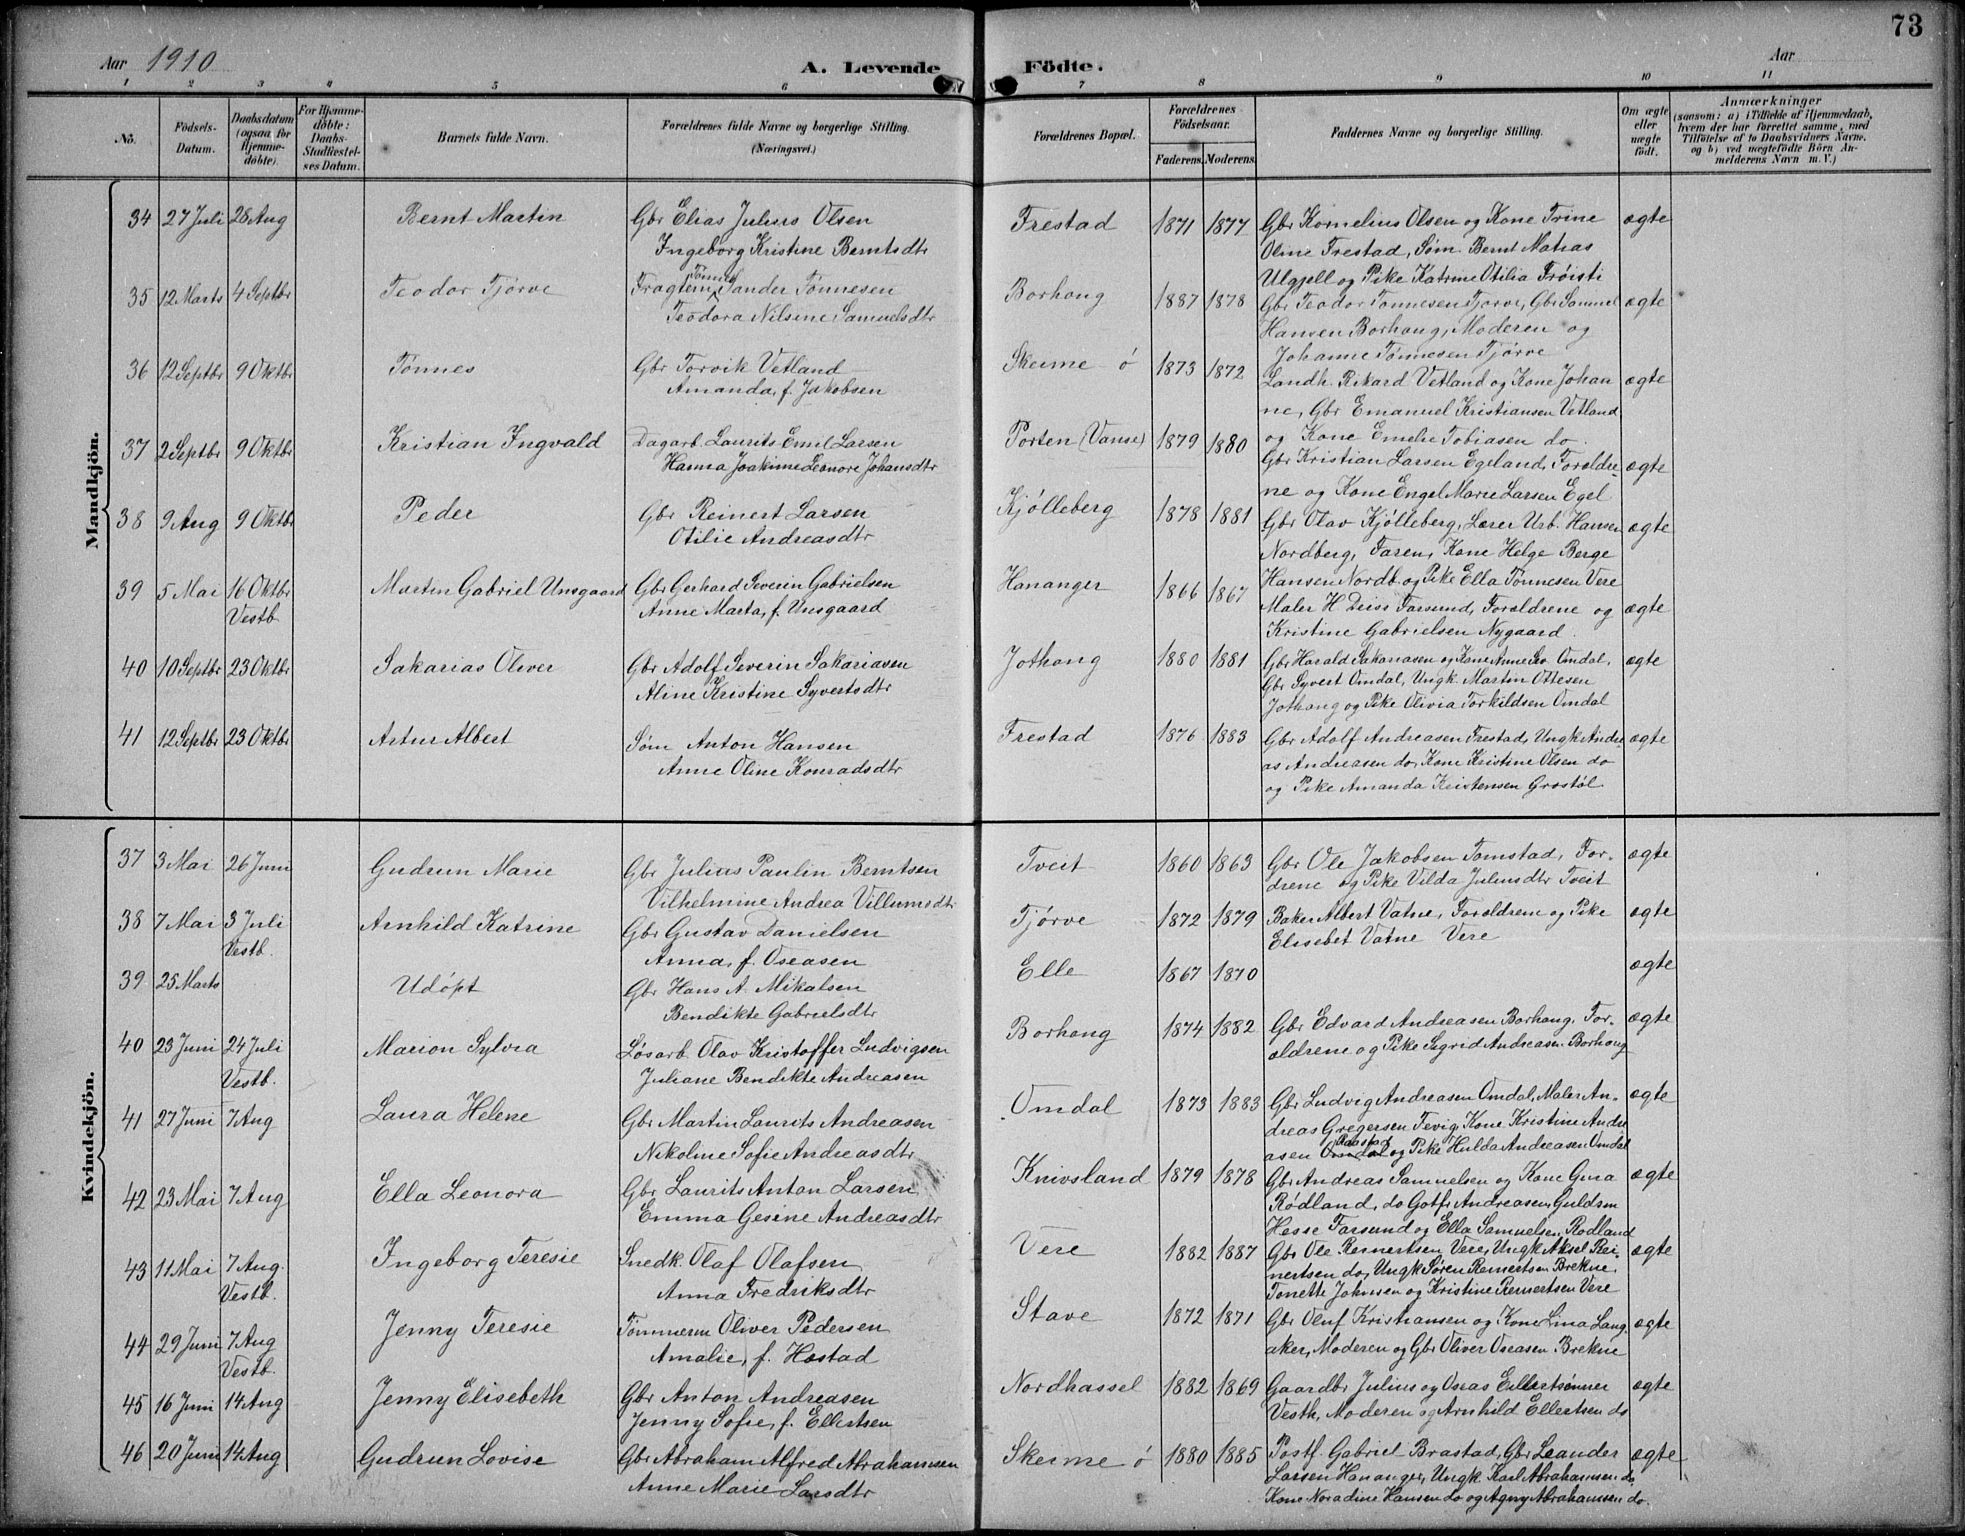 73
Aar 1910 A. Levende Födte. Aar
1 2 3 4 5 6 7 8 9 10 11
No. Födsels-Datum. Daabsdatum (ogsaa for Hjemmedöbte). For Hjemmedöbte: Daabs-Stadfæstelses Datum. Barnets fulde Navn. Forældrenes fulde Navne og borgerlige Stilling. (Næringsvei.) Forældrenes Bopæl. Forældrenes Födselsaar. Faderens. Moderens. Faddernes Navne og borgerlige Stilling. Om ægte eller uægte födt. Anmærkninger (saasom: a) i Tilfælde af Hjemmedaab, hvem der har forrettet samme, med Tilföielse af to Daabsvidners Navne. og b) ved uægtefödte Börn Anmelderens Navn m. V.)
Mandkjön.
34 27 Juli 28 Aug Bernt Martin Gbr Elias Julius Olsen Frestad 1871 1877 Gbr Kornelius Olsen og Kone Trine ægte
Ingeborg Kristine Berntsdtr Oline Frestad, Søm. Bernt Matias
Ulgjell og Pike Katrine Otilia Frøisti
35 12 Marts 4 Septbr Teodor Tjørve Fragtem. Tønnes Sander Tønnesen Borhaug 1887 1878 Gbr Teodor Tønnesen Tjørve, Gbr Samuel ægte
Teodora Nilsine Samuelsdtr Hansen Borhaug, Moderen og
Johanne Tønnesen Tjørve
36 12 Septbr 9 Oktbr Tønnes Gbr Torvik Vetland Skeime ø 1873 1872 Landh. Rikard Vetland og Kone Johan ægte
Amanda, f. Jakobsen ne, Gbr Emanuel Kristiansen Vetland
og Kone Emelie Tobiasen do.
37 2 Septbr 9 Oktbr Kristian Ingvald Dagarb. Laurits Emil Larsen Porten (Vanse) 1879 1880 Gbr Kristian Larsen Egeland, Foreldre- ægte
Hanna Joakime Leonore Johansdtr ne og Kone Engel Marie Larsen Egel
38 9 Aug 9 Oktbr Peder Gbr Reinert Larsen Kjølleberg 1878 1881 Gbr Olav Kjølleberg, Lærer Urb. Hansen ægte
Otilie Andreasdtr Nordberg, Faren, Kone Helge Berge
Hansen Nordb. og Pike Ella Tønnesen Vere
39 5 Mai 16 Oktbr Vestb Martin Gabriel Unsgaard Gbr Gerhard Severin Gabrielsen Hananger 1866 1867 Maler H Deiss Farsund, Foreldrene og ægte
Anne Marta, f. Unsgaard Kristine Gabrielsen Nygaard.
40 10 Septbr 23 Oktbr Sakarias Oliver Gbr Adolf Severin Sakariasen Jothaug 1880 1881 Gbr Harald Sakariasen og Kone Anne Sev. Omdal, ægte
Aline Kristine Syvertsdtr Gbr Syvert Omdal, Ungk. Martin Ottesen
Jothaug og Pike Olivia Torkildsen Omdal
41 12 Septbr 23 Oktbr Artur Albert Søm Anton Hansen Frestad 1876 1883 Gbr Adolf Andreasen Frestad, Ungk Andre ægte
Anne Oline Konradsdtr as Andreasen do, Kone Kristine Olsen do
og Pike Amanda Kristensen Grostøl.
Kvindekjön.
37 3 Mai 26 Juni Gudrun Marie Gbr Julius Paulin Berntsen Tveit 1860 1863 Gbr Ole Jakobsen Tomstad, For- ægte
Vilhelmine Andrea Villumsdtr drene og Pike Vilda Juliusdtr Tveit
38 7 Mai 3 Juli Vestb. Arnhild Katrine Gbr Gustav Danielsen Tjørve 1872 1879 Baker Albert Vatne, Foreldrene og Pike ægte
Anna, f. Oseasen Elisebet Vatne Vere
39 25 Marts Udøpt Gbr Hans A. Mikalsen Elle 1867 1870 ægte
Bendikte Gabrielsdtr
40 23 Juni 24 Juli Vestb. Marion Sylvia Løsarb. Olav Kristoffer Ludvigsen Borhaug 1874 1882 Gbr Edvard Andreasen Borhaug, For- ægte
Juliane Bendikte Andreasen ældrene og Pike Sigrid Andreasen Borhaug
41 27 Juni 7 Aug Laura Helene Gbr Martin Laurits Andreasen Omdal 1873 1883 Gbr Ludvig Andreasen Omdal, Maler An- ægte
Nikoline Sofie Andreasdtr dreas Gregersen Tevig, Kone Kristine Andre
asen Omdal og Pike Hulda Andreasen Omdal
42 23 Mai 7 Aug Ella Leonora Gbr Laurits Anton Larsen Knivsland 1879 1878 Gbr Andreas Samuelsen og Kone Gina ægte
Emma Gesine Andreasdtr Rødland, do Gotfr. Andreasen, Guldsm
Hesse Farsund og Ella Samuelsen Rødland
43 11 Mai 7 Aug. Vestb. Ingeborg Teresie Snedk. Olaf Olafsen Vere 1882 1887 Gbr Ole Reinertsen Vere, Ungk Aksel Rei- ægte
Anna Fredriksdtr nertsen do, Ungk Søren Reinertsen Brekne,
Tonette Johnsen og Kristine Reinertsen Vere
44 29 Juni 7 Aug Vestb. Jenny Teresie Tømmerm Oliver Pedersen Stave 1872 1871 Gbr Oluf Kristiansen og Kone Lina Lang- ægte
Amalie, f. Hæstad aker, Moderen og Gbr Oliver Oseasen Brekne
45 16 Juni 14 Aug Jenny Elisebeth Gbr Anton Andreasen Nordhassel 1882 1869 Gaardbr Julius og Oseas Ellertsønner ægte
Jenny Sofie, f. Ellertsen Vesth, Moderen og Arnhild Ellertsen do
46 20 Juni 14 Aug Gudrun Lovise Gbr Abraham Alfred Abrahamsen Skeime ø 1880 1885 Postf. Gabriel Brastad, Gbr Leander ægte
Anne Marie Larsdtr Larsen Hananger, Ungk. Karl Abrahamsen do
Kone Noradine Hansen do og Agny Abrahamsen do.